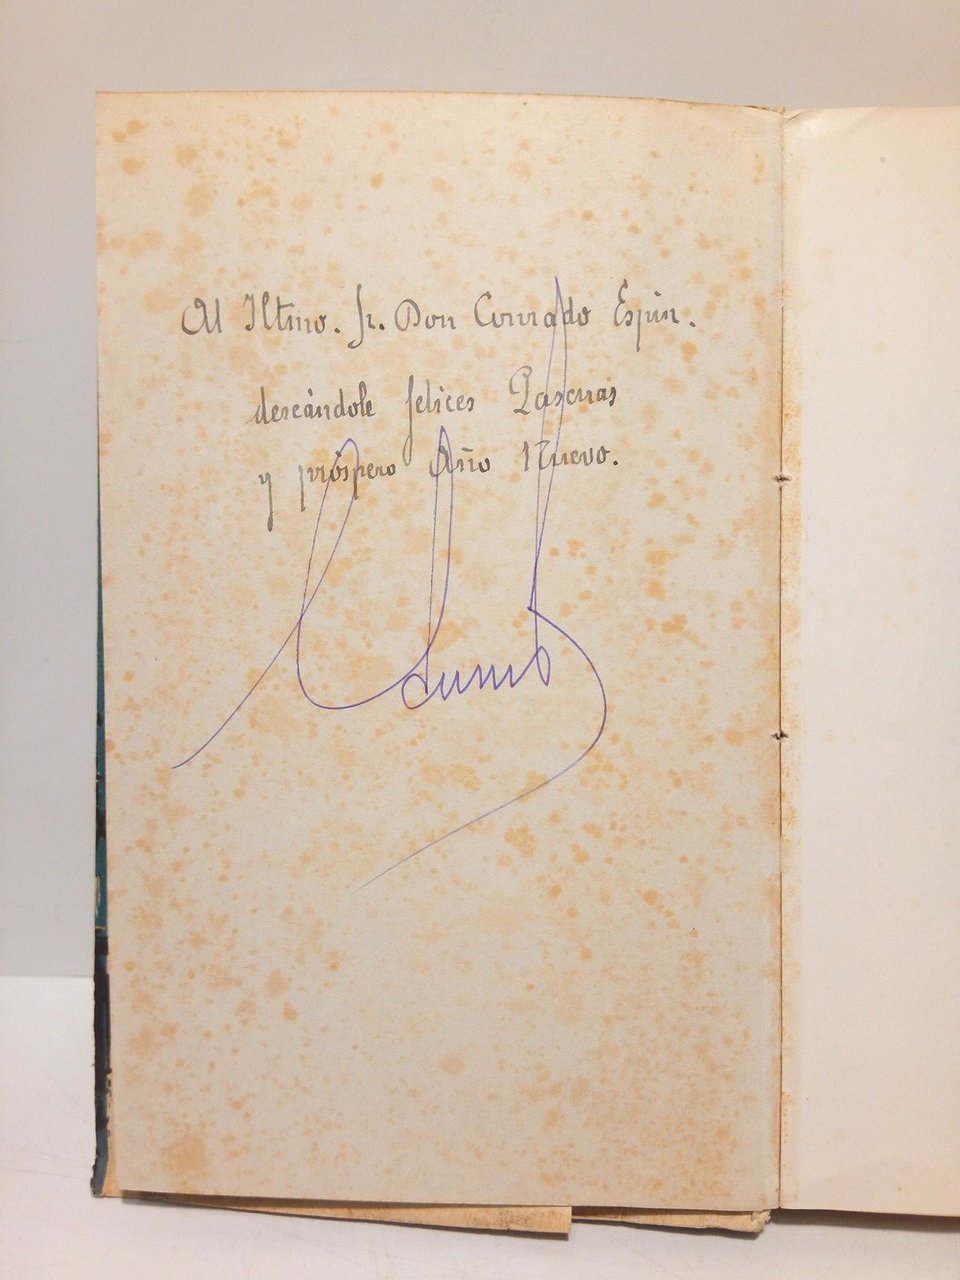 Al Iltmo. Sr. Don Conrado Espin.
deseándole felices Pascuas
y próspero Año Nuevo.